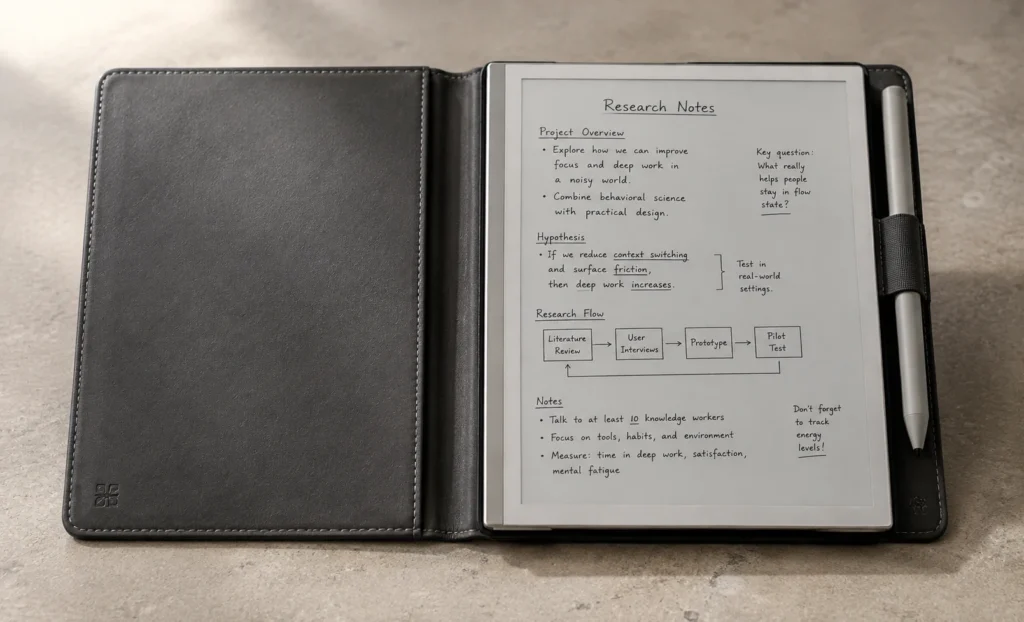 Research Notes
Project Overview
• Explore how we can improve
focus and deep work in
a noisy world.
• Combine behavioral science
with practical design.
Key question:
What really
helps people
stay in flow
state?
Hypothesis
• If we reduce context switching
and surface friction,
then deep work increases.
Test in
real-world
settings.
Research Flow
Literature
Review
User
Interviews
Prototype
Pilot
Test
Notes
• Talk to at least 10 knowledge workers
• Focus on tools, habits, and environment
• Measure: time in deep work, satisfaction,
mental fatigue
Don't forget
to track
energy
levels!